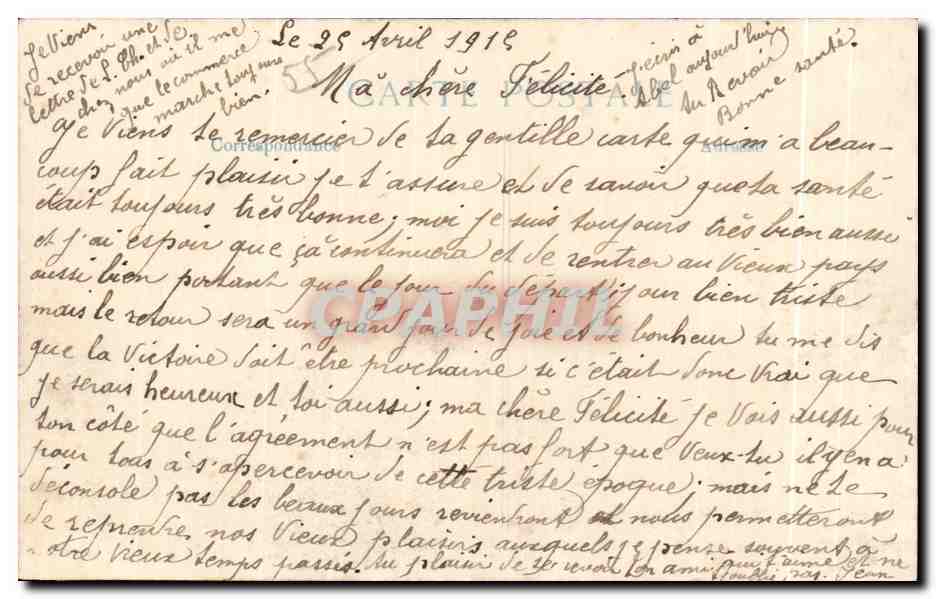 Le 25 Avril 1915
Je Viens
de recevoir une
lettre de L. Th. et de
chez nous où il me
que le commerce
marche toujours
bien.
55
CARTE POSTALE
Correspondance
Adresse
CPAPHIL
Mà chère Félicite
J'écris à
Abel aujourd'hui
au Revoir
Bonne santé.
Je Viens te remercier de ta gentille carte qui m'a beau-
coup fait plaisir je t'assure et de savoir que ta santé
était toujours très bonne; moi je suis toujours très bien aussi
et j'ai espoir que çà continuera et de rentrer au Vieux pays
aussi bien portant que le jour du départ; jour bien triste
mais le retour sera un grand jour de joie et de bonheur tu me dis
que la Victoire doit être prochaine si c'était donc Vrai que
je serais heureux et toi aussi; ma chère Félicité je Vois aussi pour
ton côté que l'agréement n'est pas fort que Veux-tu il y en a
pour tous à s'apercevoir de cette triste époque; mais ne te
déconsole pas les beaux jours reviendront et nous permetteront
de reprendre nos Vieux plaisirs auxquels je pense souvent à
otre vieux temps passés. Au plaisir de te revoir ton ami qui t'aime et ne
t'oublie pas. Jean